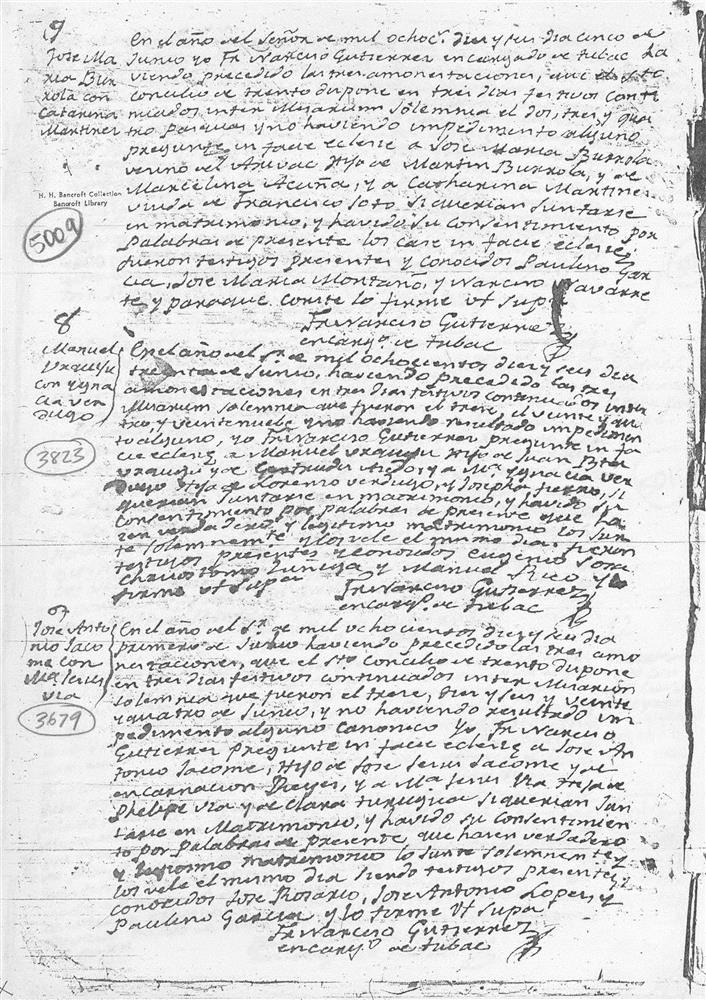 9
Jose Ma
ria Bur
rola con
Catarina
Martinez
En el año del Señor de mil ochoc.s diez y seis dia cinco de
Junio yo Fr Narciso Gutierrez encargado de tubac ha
viendo precedido las tres amonestaciones, que el sto
concilio de trento dispone en tres dias festivos conti
nuados inter Misarum Solemnia el dos, tres, y qua
tro Pasquas y no haviendo impedimento alguno
pregunte in facie eclesie a Jose Maria Burrola
vecino del Arivac Hijo de Martin Burrola, y de
Marcelina Acuña, y a Catharina Martinez
viuda de Francisco Soto si querian Juntarse
en matrimonio, y havido su consentimiento por
Palabras de presente los case in facie eclesie
fueron testigos presentes y conocidos Paulino Gar
cia, Jose Maria Montaño, y Narciso Navarre
te y paraque conste lo firme ut supra
Fr Narciso Gutierrez
encarg.o de tubac
H. H. Bancroft Collection
Bancroft Library
5009
8
Manuel
Urquiju
con Ygna
cia ver
dugo
3823
En el año del S.r de mil ochocientos diez y seis dia
treinta de Junio, haviendo precedido las tres
amonestaciones en tres dias festivos continuados inter
Misarum solemnia que fueron el trece, el veinte y qua
tro, y veintenuebe y no haviendo resultado impedimen
to alguno, yo Fr Narciso Gutierrez pregunte in fa
cie eclesie a Manuel Urquiju Hijo de Juan
Urquiju y de Gertrudis y a Ma Ygnacia ver
dugo Hija de Lorenzo verdugo, y Josepha fierro, si
querian Juntarse en matrimonio, y havido su
consentimiento por palabras de presente que ha
zen verdadero y legitimo matrimonio los Jun
te solemnemente y los vele el mismo dia. fueron
testigos presentes y conocidos Eugenio Sosa
Chrisostomo Zuñiga y Manuel Rico y lo
firme ut supra
Fr Narciso Gutierrez
encarg.o de tubac
Jose Anto
nio Jaco
me con
Ma Jesus
via
3679
En el año del S.r de mil ochocientos diez y seis dia
primero de Junio haviendo precedido las tres amo
nestaciones, que el sto concilio de trento dispone
en tres dias festivos continuados inter Misarum
solemnia que fueron el trece, diez y seis y veinte
y quatro de Junio, y no haviendo resultado im
pedimento alguno canonico Yo Fr Narciso
Gutierrez pregunte in facie eclesie a Jose An
tonio Jacome, Hijo de Jose Jesus Jacome y de
encarnacion Reyes, y a Ma Jesus Via Hija de
Phelipe via y de Clara si querian Jun
tarse en Matrimonio, y havido su consentimien
to por Palabras de presente, que hacen verdadero
y legitimo matrimonio los Junte solemnente y
los vele el mismo dia siendo testigos presentes y
conocidos Jose Rosario, Jose Antonio Lopez y
Paulino Garcia y lo firme ut supa
Fr Narciso Gutierrez
encarg.o de tubac